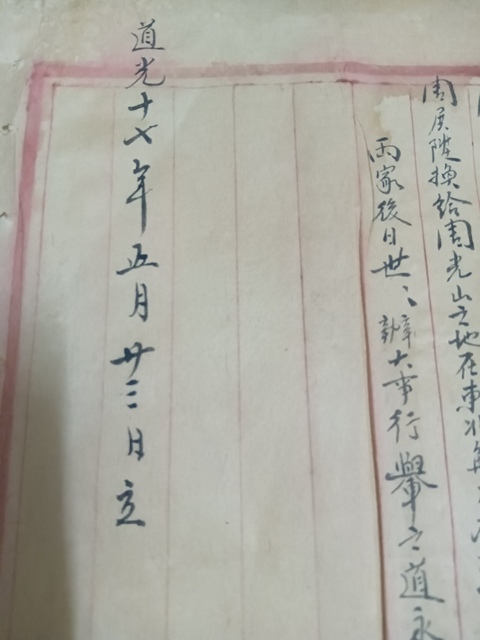 周陞換給周光山之地在東北角
兩家後日世〻辦大事行轝之道永
道光十七年五月廿三日立